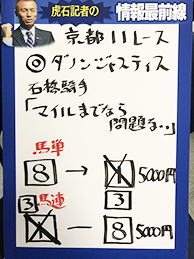 虎石記者の
情報最前線
京都11レース
◎ダノンジャスティス
石橋騎手
「マイルまでなら
問題な…」
馬単
8 → 1 5000円
3 馬連 3
1 — 8 5000円